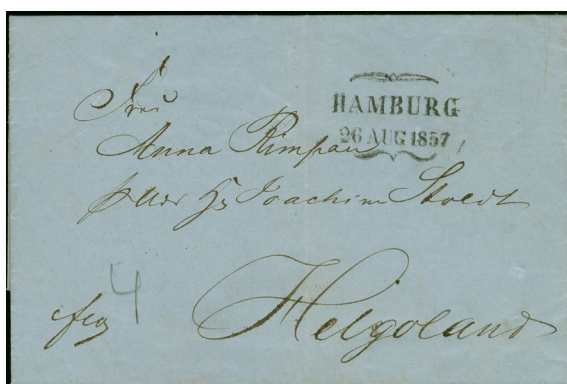 HAMBURG
26 AUG 1857
Frau
Anna Rimpau
Joachim Stoldt
4
Helgoland